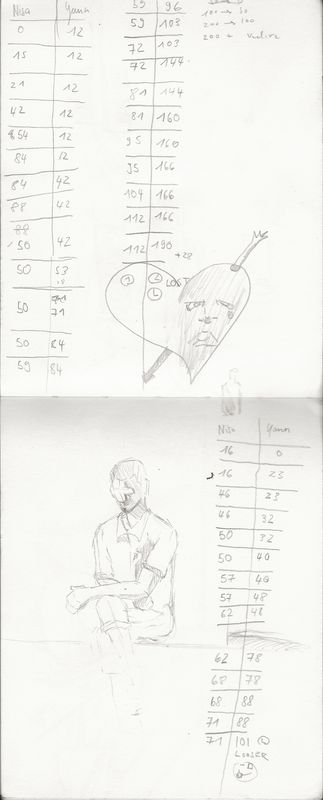 Nisa Yann
0 12
15 12
21 12
42 12
54 12
84 12
84 42
88 42
88
50 42
50 53
50 71
50 84
59 84
59 96
59 103
72 103
72 144
81 144
81 160
95 160
95 166
104 166
112 166
112 190
+28
100 → 50
200 → 100
LOST
Nisa Yann
16 0
16 23
46 23
46 32
50 32
50 40
57 40
57 48
62 48
62 78
68 78
68 88
71 88
71 101
LOOSER